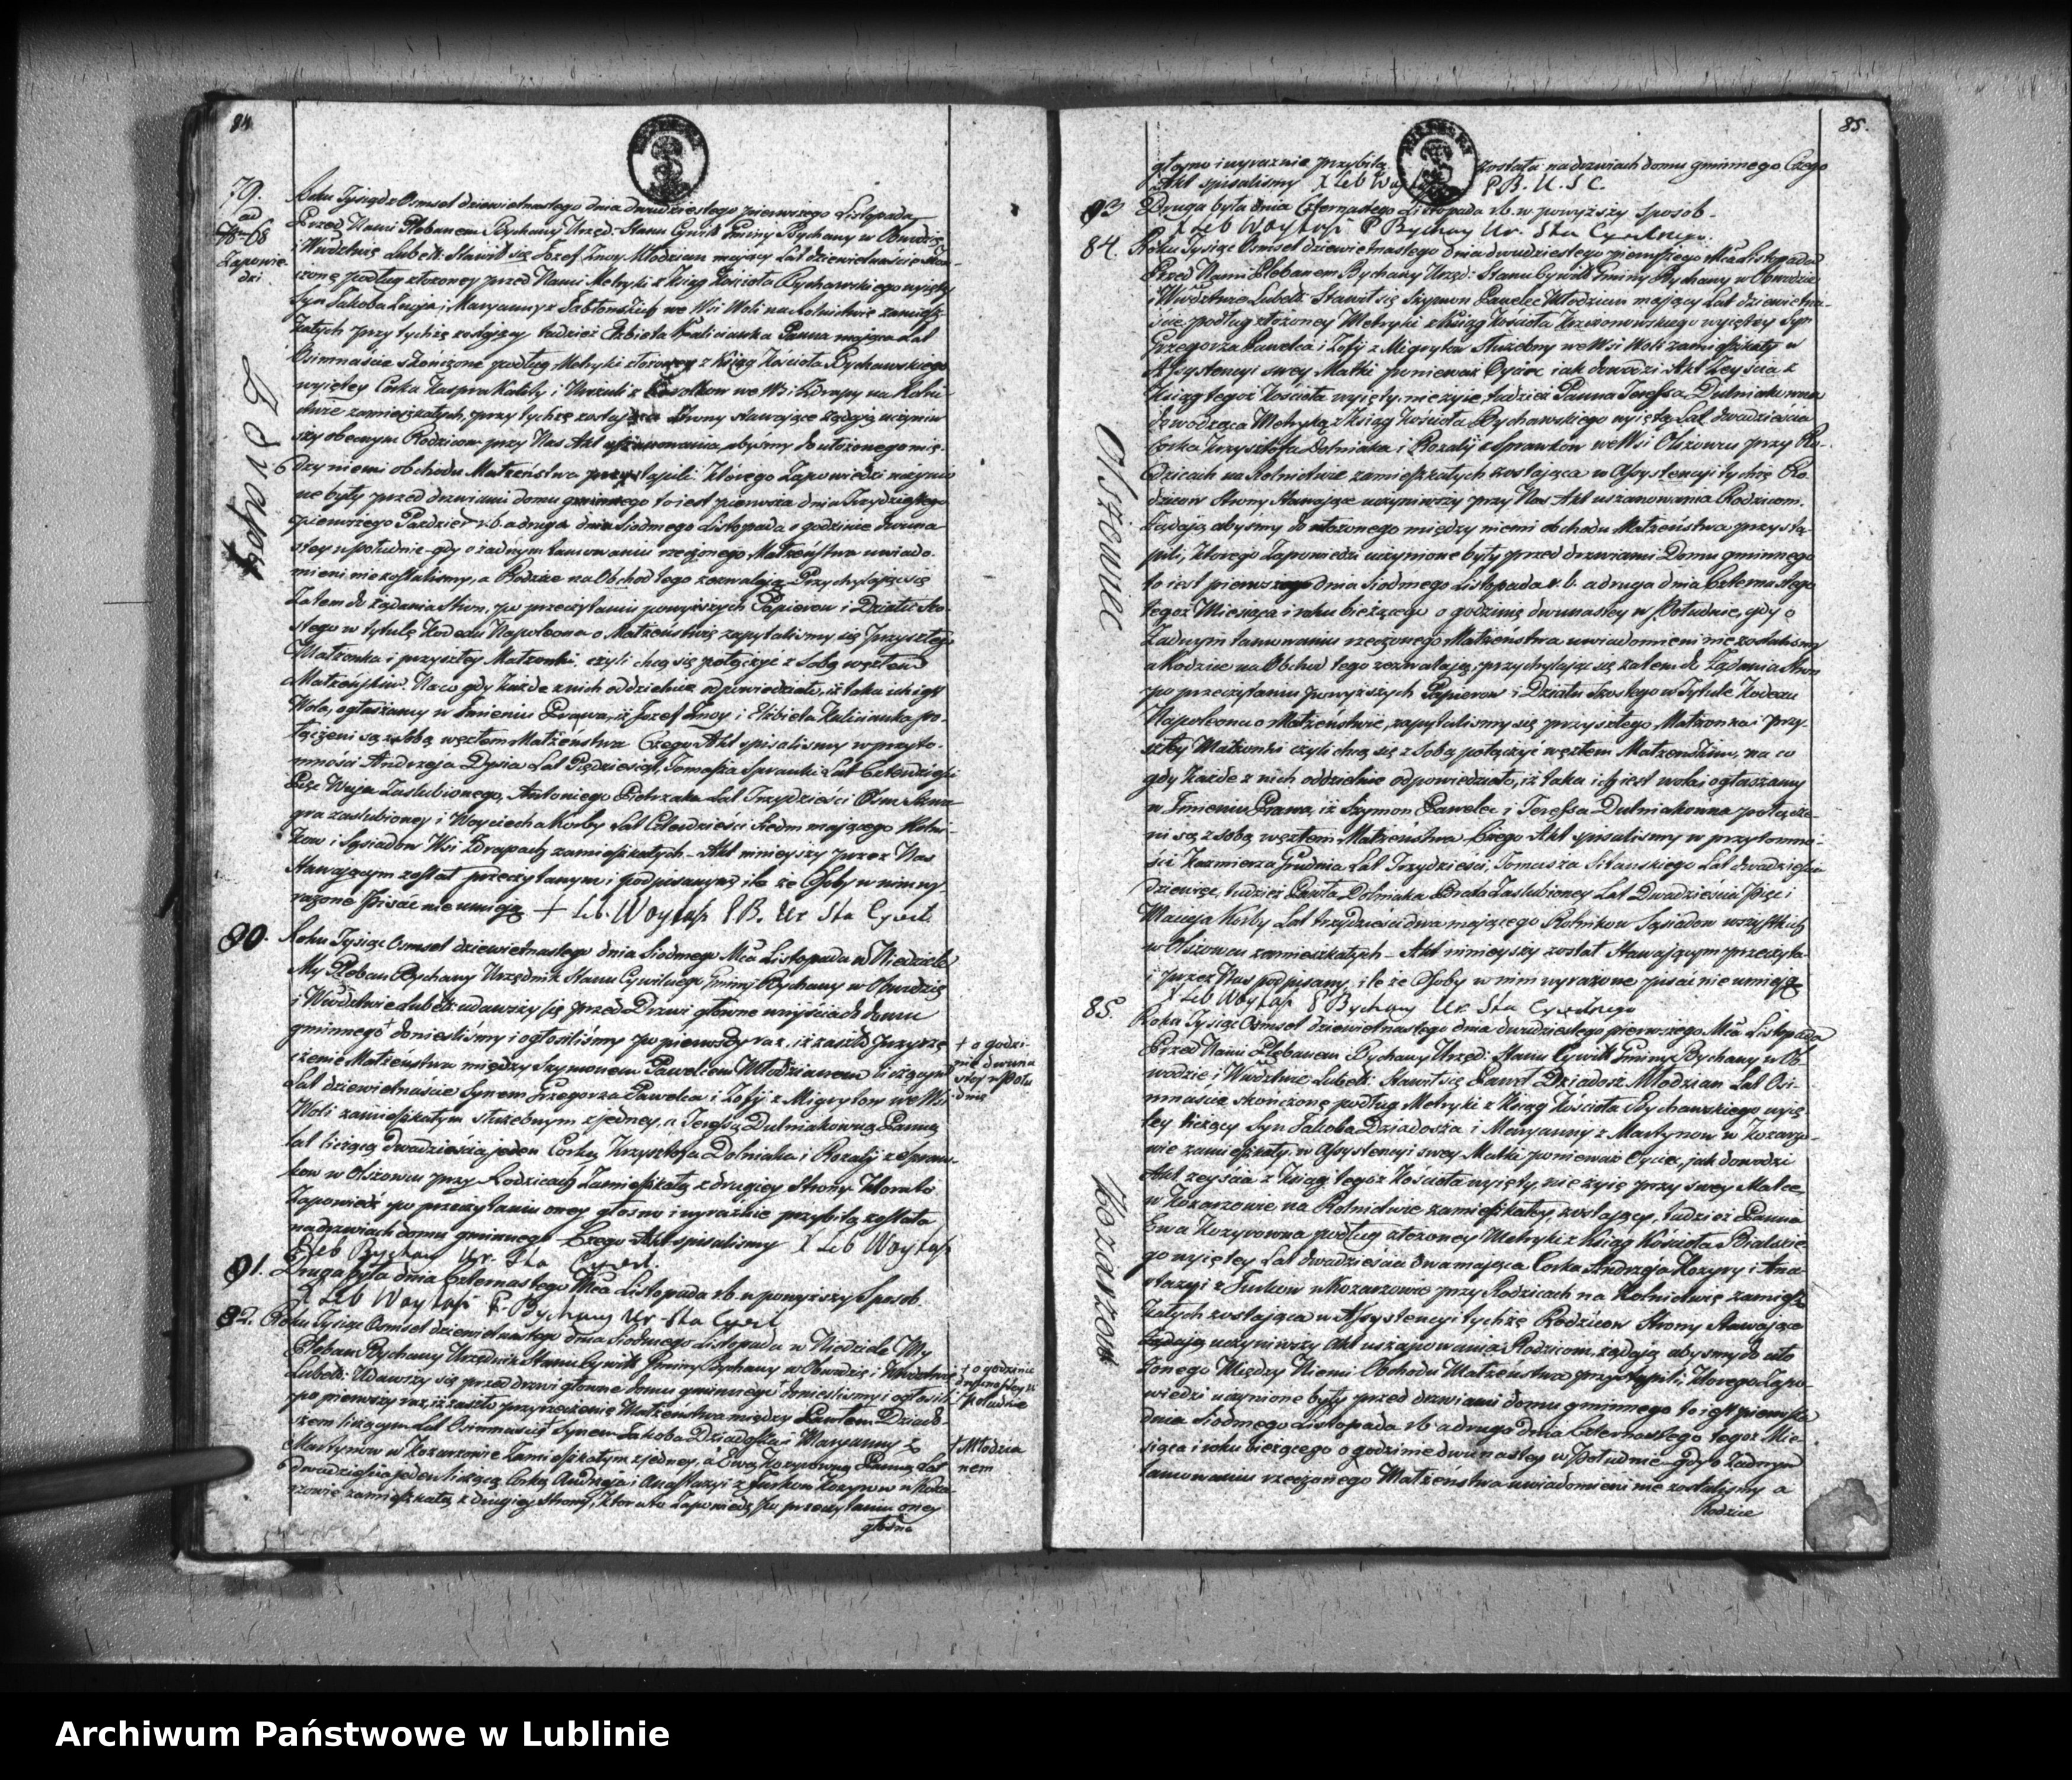 84.
79.
ad
68
Zapowie-
dzi
Zdrapy
Roku Tysiądz Osmset dziewietnastego dnia dwudziestego pierwszego Listopada
Przed Nami Plebanem Bychawy Urzęd: Stanu Cywil: Gminy Bychawy w Obwodzie
i Wwodztwie Lubels: Stawił się Jozef Młodzian mający Lat dziewietnascie skon-
czone podług złożoney przed Nami Metryki z Xiąg Kościoła Bychawskiego wyiętey
Syn Jakoba i Maryanny z Jabłońskich we Wsi Woli na Rolnictwie zamiesz-
kałych przy tychże zostaiący tudzież Elżbieta Kaliciauka Panna maiąca Lat
Osimnaście skończone podług Metryki złożoney z Xiąg Kościoła Bychawskiego
wyiętey Corka Kaspra Kality i Urszuli z we Wsi Zdrapy na Rolni-
ctwie zamieszkałych, przy tychże zostaiąca Strony stawaiące żądaią uczyniw
szy obecnym Rodzicom przy Nas Akt uszanowania, abyśmy do ułożonego mię-
dzy niemi obchodu Małżeństwa przystąpili Ktorego Zapowiedzi uczynio
ne były przed drzwiami domu gminnego to iest pierwsza dnia Trzydziestego
pierwszego Pazdzier: r.b. a druga dnia Siodmego Listopada o godzinie dwuna
stey w południe gdy o żadnym tamowaniu rzeczonego Małżeństwa uwiado-
mieni nie zostalismy, a Rodzice na Obchod tego zezwalaią Przychylaiąc się
Zatem do żądania Stron, po przeczytaniu powyższych Papierow i Działu szo-
stego w tytule Kodexu Napoleona o Małżeństwie zapytalismy się Przyszłego
Małżonka i przyszłey Małżonki, czyli chcą się połączyc z Sobą węzłem
Małżeńskim. Na co gdy Każde z nich oddzielnie odpowiedziało, iż taka ich iest
Wola, ogłaszamy w Imieniu Prawa, iż Jozef i Elżbieta Kaliciauka po-
łączeni są z sobą węzłem Małżeństwa Czego Akt spisalismy w przyto-
mności Andrzeja Dysia Lat Pięćdziesiąt, Tomasza Sprawki Lat Czterdzieści
Pięć Wuja Zaślubionego, Antoniego Pietrzaka Lat Trzydzieści Osm Szwa
gra zaślubioney i Woyciecha Korby Lat Czterdzieści Siedm mającego Rolni-
kow i Sąsiadow Wsi Zdrapach zamieszkałych - Akt ninieyszy przez Nas
Stawaiącym został przeczytanym i podpisanym ile że Osoby w nim wy
rażone Pisać nie umieią P.B. Ur Sta Cywil.
80. Roku Tysiąc Osmset dziewietnastego dnia Siodmego Mca Listopada w Niedziele
My Pleban Bychawy Urzędnik Stanu Cywilnego Gminy Bychawy w Obwodzie
i Wwodztwie Lubels: udawszy się przed Drzwi głowne wniyścia do domu
gminnego + donieslismy i ogłosilismy po pierwszy raz, iż zaszło Przyrze
czenie Małżeństwa między Szymonem Pawelcem Młodzianem liczącym
Lat dziewietnascie Synem Grzegorza Pawelca i Zofij z Migryłow we Wsi
Woli zamieszkałym służebnym z jedney, a Teressą Dulniakowną Panną
lat liczącą dwadzieścia jeden Corką Krzysztofa Dolniaka i Rozalij z Spraw-
kow w Olszowcu przy Rodzicach Zamieszkałą z drugiey Strony Ktora to
Zapowiedz po przeczytaniu oney głosno i wyraznie przybitą została
na drzwiach domu gminnego Czego Akt spisalismy X Leb Woytasz
P Leb Bychawy Ur. Sta Cywil.
+ o godzi-
nie dwuna
stey w Połu
dnie
81. Druga była dnia Czternastego Mca Listopada r.b. w powyższy Sposob
X Leb Woytasz P. Bychawy Ur Sta Cywil
82. Roku Tysiąc Osmset dziewietnastego dnia Siodmego Listopada w Niedziele My
Pleban Bychawy Urzędnik Stanu Cywil: Gminy Bychawy w Obwodzie i Wwodztwie
Lubels: Udawszy się przed drzwi głowne domu gminnego + donieslismy i ogłosili
po pierwszy raz, iż zaszło przyrzeczenie Małżeństwa między Pawłem Dziado-
szem liczącym Lat Osimnaście + Synem Jakoba Dziadosza i Maryanny z
Martynow w Kozarzowie Zamieszkałym z jedney, a Ewą Kozyrowną Panną Lat
dwadzieścia jeden liczącą Corką Andrzeja i Anastazyi z Turkow Kozyrow w Koza-
rzowie zamieszkałą z drugiey strony, ktora to Zapowiedz po przeczytaniu oney
głośno
+ o godzinie
dwunastey w
Południe
+ Młodzia
nem
85.
głosno i wyraznie przybitą została na drzwiach domu gminnego Czego
Akt spisalismy X Leb P.B. U. S C.
83 Druga była dnia Czternastego Listopada r.b. w powyższy sposob -
X Leb Woytasz P Bychawy Ur. Sta Cywilnego.
84.
Olszowiec
Roku Tysiąc Osmset dziewietnastego dnia dwudziestego pierwszego Mca Listopada
Przed Nami Plebanem Bychawy Urzęd: Stanu Cywil: Gminy Bychawy w Obwodzie
i Wwodztwie Lubels: Stawił się Szymon Pawelec Młodzian mający Lat dziewietna-
ście podług złożoney Metryki z Xiąg Kościoła Krzczonowskiego wyiętey Syn
Grzegorza Pawelca i Zofij z Migryłow Służebny we Wsi Woli zamieszkały w
Assystencyi swey Matki ponieważ Oyciec iak dowodzi Akt Zeyścia z
Xiąg tegoż Kościoła wyięty, nie żyie, tudzież Panna Teressa Dulniakowna
dowodząca Metryką z Xiąg Kościoła Bychawskiego wyiętą Lat dwadzieścia
Corka Krzysztofa Dolniaka i Rozalij z Sprawkow we Wsi Olszowcu przy Ro-
dzicach na Rolnictwie zamieszkałych zostaiąca w Assystencyi tychże Ro-
dzicow Strony Stawaiące uczyniwszy przy Nas Akt uszanowania Rodzicom.
Żądaią abyśmy do ułożonego między niemi obchodu Małżeństwa przystą-
pili, Ktorego Zapowiedzi uczynione były przed drzwiami Domu gminnego
to iest pierwsza dnia Siodmego Listopada r.b. a druga dnia Czternastego
tegoż Miesiąca i roku bieżącego o godzinie dwunastey w Południe, gdy o
Żadnym tamowaniu rzeczonego Małżeństwa uwiadomieni nie zostalismy
a Rodzice na Obchod tego zezwalaią, przychylaiąc się zatem do Żądania Stron
po przeczytaniu powyższych Papierow i Działu Szostego w Tytule Kodexu
Napoleona o Małżeństwie, zapytalismy się przyszłego Małżonka i przy-
szłey Małżonki czyli chcą się z Sobą połączyc węzłem Małżeńskim, na co
gdy Każde z nich oddzielnie odpowiedziało, iż taka ich iest wola, ogłaszamy
w Imieniu Prawa, iż Szymon Pawelec i Teressa Dulniakowna połącze-
ni są z sobą węzłem Małżeństwa Czego Akt spisalismy w przytomno-
ści Kazimierza Grudnia Lat Trzydzieści, Tomasza Lat dwadzieścia
dziewięć, tudzież Pawła Dolniaka Brata Zaślubioney Lat Dwadzieścia Pięć i
Macieja Korby Lat trzydzieści dwa mającego Rolnikow Sąsiadow wszystkich
w Olszowcu zamieszkałych - Akt ninieyszy został Stawaiącym przeczyta
i przez Nas podpisany, ile że Osoby w nim wyrażone pisać nie umieią
X Leb Woytasz P Bychawy Ur. Sta Cywilnego
85.
Kozarzow
Roku Tysiąc Osmset dziewietnastego dnia dwudziestego pierwszego Mca Listopada
Przed Nami Plebanem Bychawy Urzęd: Stanu Cywil: Gminy Bychawy w Ob-
wodzie i Wwodztwie Lubels: Stawił się Paweł Dziadosz Młodzian Lat Osi-
mnaście skończone podług Metryki z Xiąg Kościoła Bychawskiego wyię
tey liczący Syn Jakoba Dziadosza i Maryanny z Martynow w Kozarzo-
wie zamieszkały, w Assystencyi swey Matki ponieważ Oyciec, jak dowodzi
Akt zeyścia z Xiąg tegoż Kościoła wyięty, nie żyie przy swey Matce
w Kozarzowie na Rolnictwie zamieszkałey, zostaiący, tudzież Panna
Ewa Kozyrowna podług złożoney Metryki z Xiąg Kościoła Bialskie
go wyiętey Lat dwadzieścia dwa maiąca Corka Andrzeja Kozyry i Ana-
stazyi z Turkow w Kozarzowie przy Rodzicach na Rolnictwie zamiesz
kałych zostaiąca w Assystencyi tychże Rodzicow Strony Stawaiące
Żądaią uczyniwszy Akt uszanowania Rodzicom, żądaią abysmy do uło
żonego Między Niemi Obchodu Małżeństwa przystąpili, Ktorego Zapo-
wiedzi uczynione były przed drzwiami domu gminnego to iest pierwsza
dnia Siodmego Listopada r.b. a druga dnia Czternastego tegoż Mie-
siąca i roku bieżącego o godzinie dwunastey w Południe - gdy o Żadnym
tamowaniu rzeczonego Małżenstwa uwiadomieni nie zostalismy a
Rodzice
Archiwum Państwowe w Lublinie